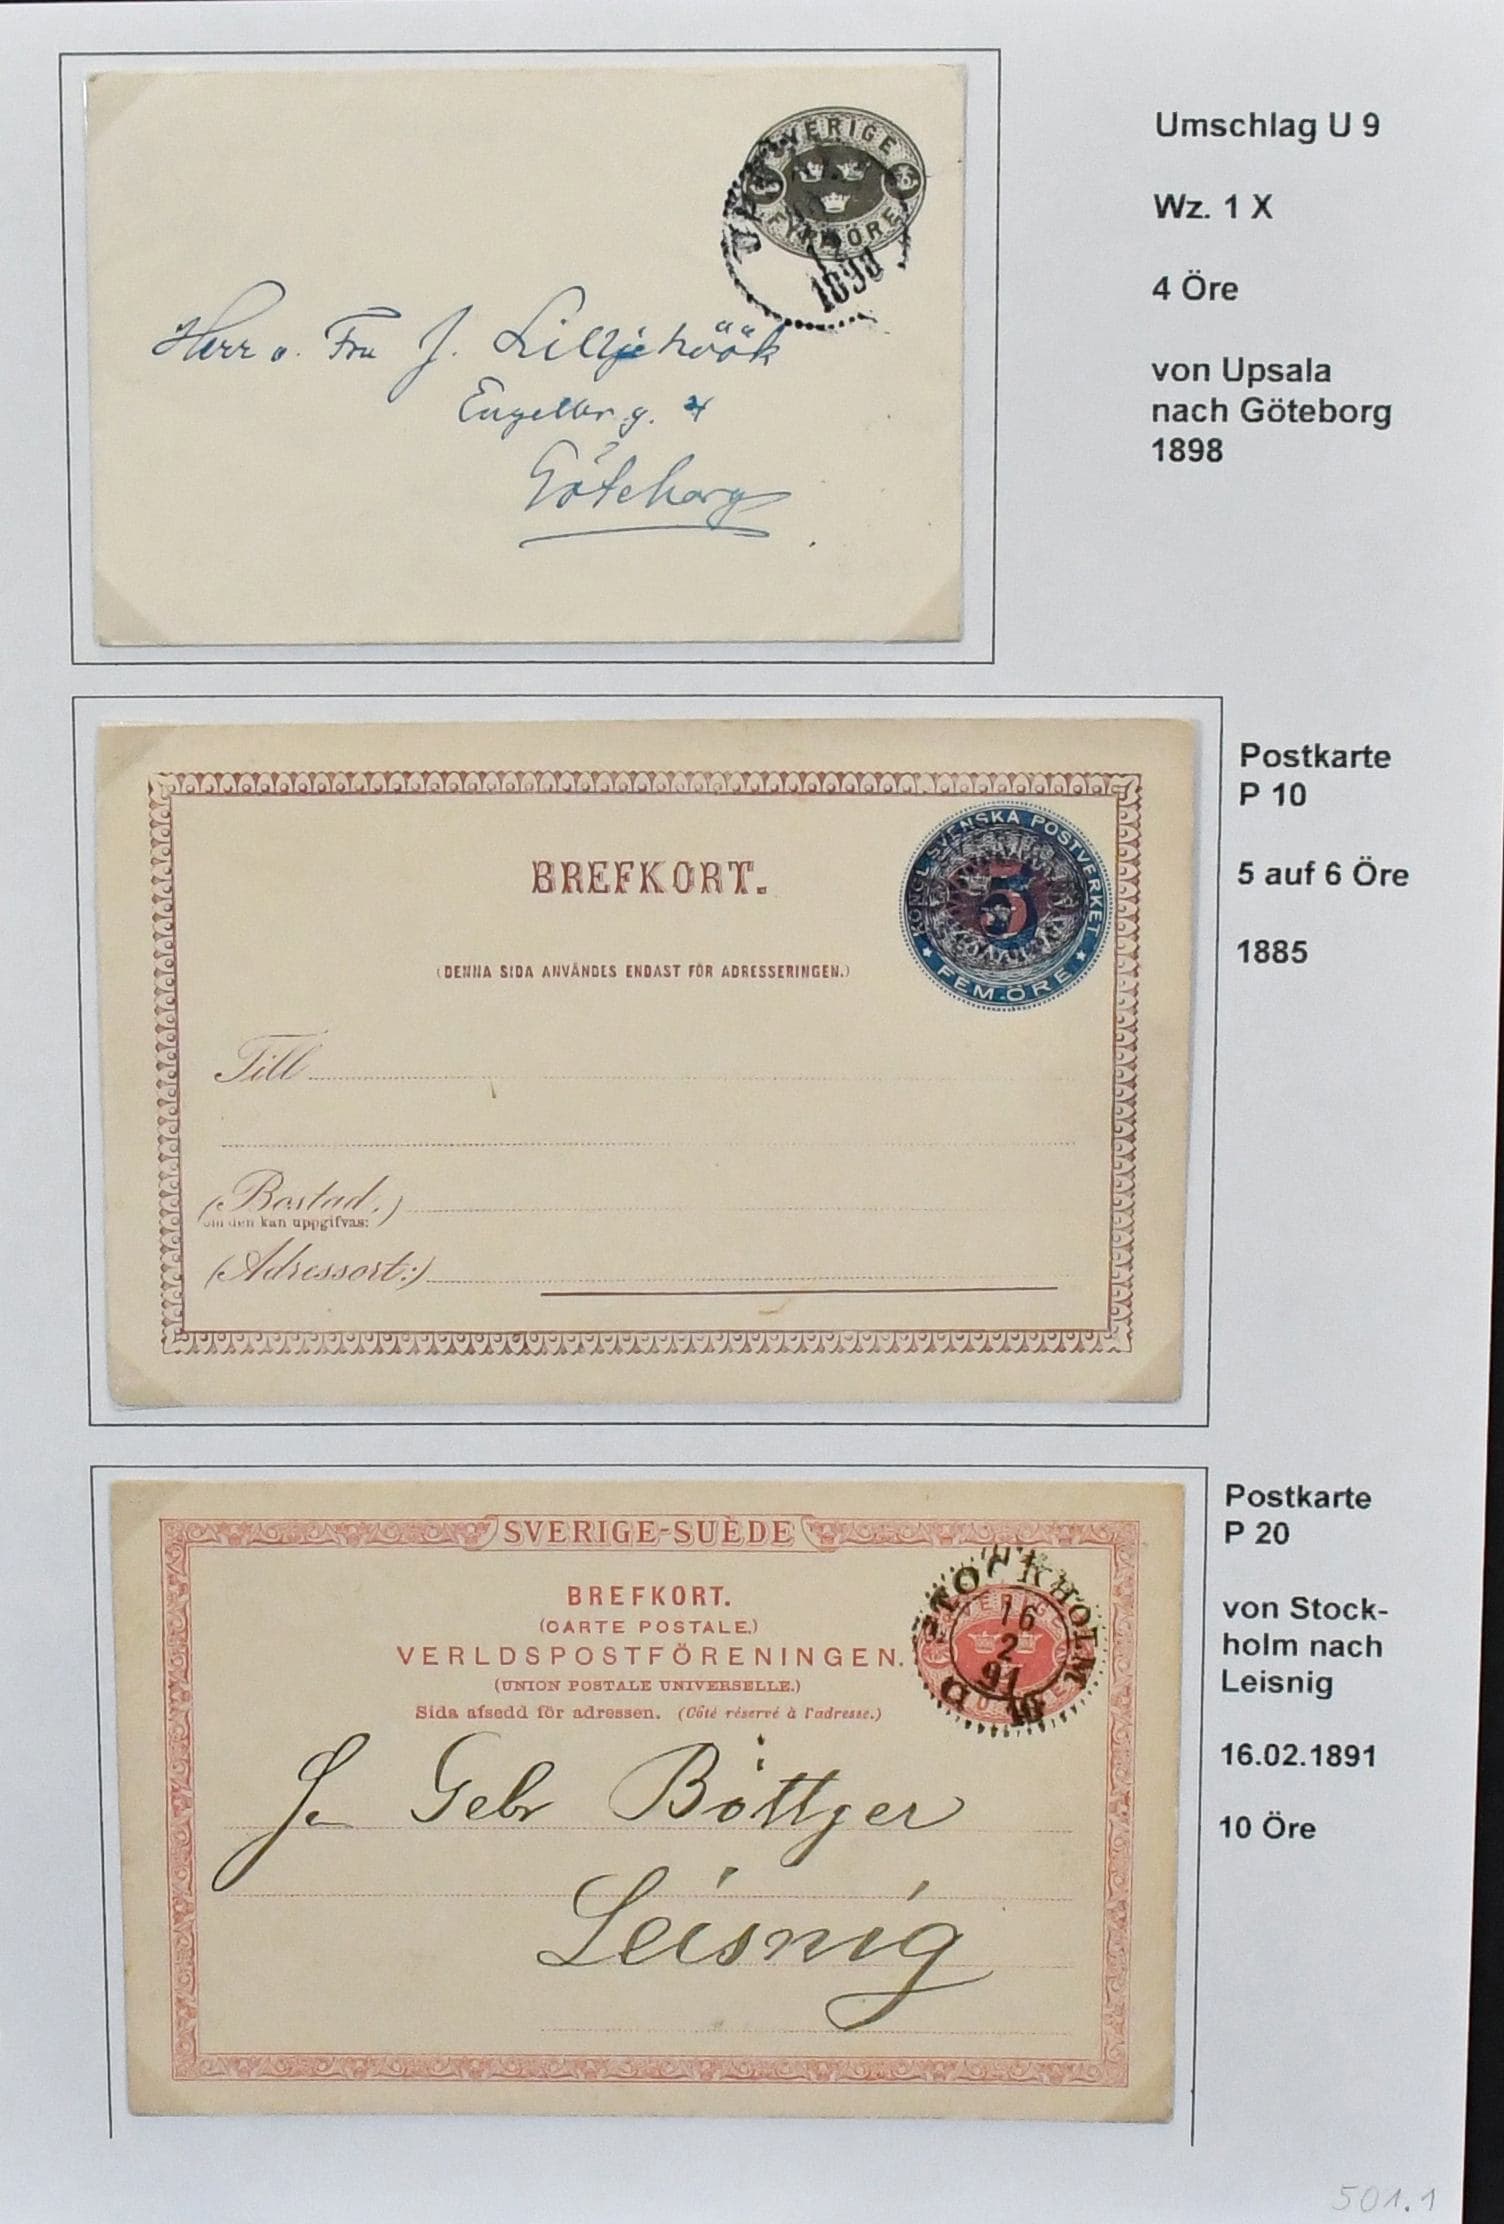 SVERIGE
FYRA ÖRE
1898
Herr o. Fru J. Lilljehöök
Engelbr.g. 4
Göteborg
Umschlag U 9
Wz. 1 X
4 Öre
von Upsala
nach Göteborg
1898
BREFKORT.
KONGL. SVENSKA POSTVERKET
5
FEM ÖRE
(DENNA SIDA ANVÄNDES ENDAST FÖR ADRESSERINGEN.)
Till
(Bostad,)
om den kan uppgifvas:
(Adressort:)
Postkarte
P 10
5 auf 6 Öre
1885
SVERIGE-SUÈDE
BREFKORT.
(CARTE POSTALE.)
VERLDSPOSTFÖRENINGEN.
(UNION POSTALE UNIVERSELLE.)
Sida afsedd för adressen. (Côté réservé à l'adresse.)
STOCKHOLM
SVERIGE
16
2
91
Gebr Böttger
Leisnig
Postkarte
P 20
von Stock-
holm nach
Leisnig
16.02.1891
10 Öre
501.1